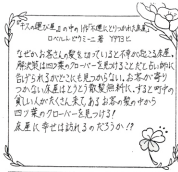 『キスの運び屋』の中の1作「不運にとりつかれた床屋」
ロベルト・ピウミーニ著 ヤヤヨヒ
なぜかお客さんの髪を切っていると不幸が起こる床屋。
解決策は四ツ葉のクローバーを見けることだと占い師に
告げられるがどこにも見つからない。お客が寄り
つかない床屋はとうとう散髪無料に。すると町中の
貧しい人がたくさん来て、ある客の髪の中から
四ツ葉のクローバーを見つける!
床屋に幸せは訪れるのだろうか!?